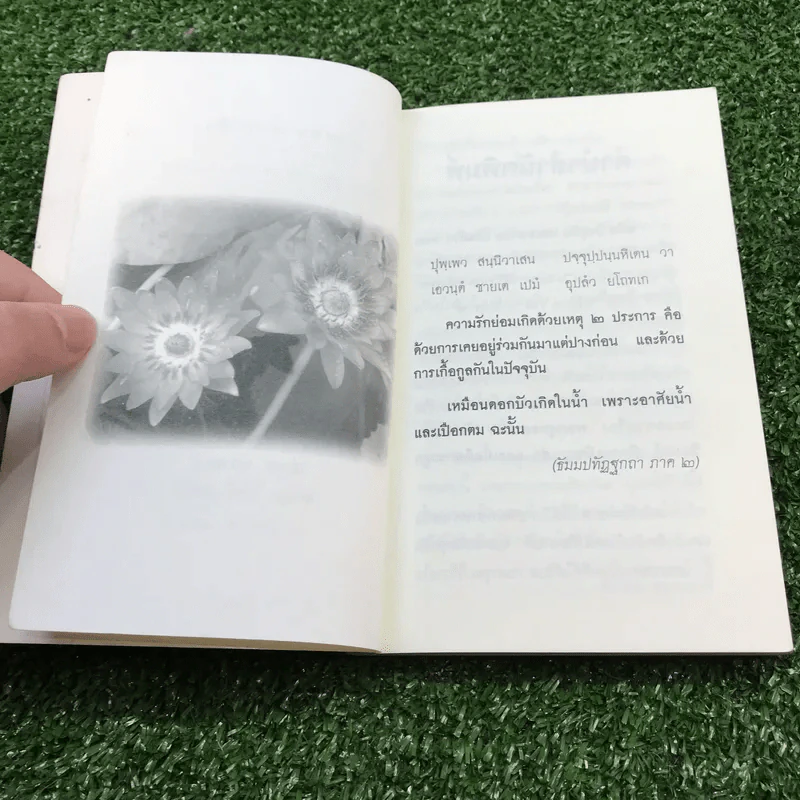 ปุพฺเพว สนฺนิวาเสน ปจฺจุปฺปนฺนหิเตน วา
เอวนฺตํ ชายเต เปมํ อุปลํว ยโถทเก
ความรักย่อมเกิดด้วยเหตุ ๒ ประการ คือ
ด้วยการเคยอยู่ร่วมกันมาแต่ปางก่อน และด้วย
การเกื้อกูลกันในปัจจุบัน
เหมือนดอกบัวเกิดในน้ำ เพราะอาศัยน้ำ
และเปือกตม ฉะนั้น
(ธัมมปทัฏฐกถา ภาค ๒)